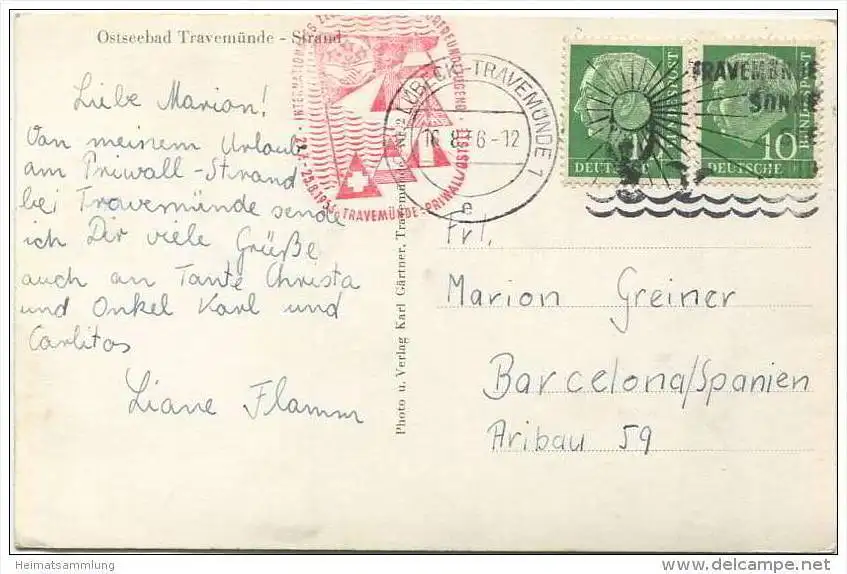 Ostseebad Travemünde - Strand
Liebe Marion!
Von meinem Urlaub
am Priwall-Strand
bei Travemünde sende
ich Dir viele Grüße
auch an Tante Christa
und Onkel Karl und
Carlitos
Liane Flamm
Photo u. Verlag Karl Gärtner, Travemünde
INTERNATIONALES
TRAVEMÜNDE-PRIWALL/OSTSEE
LÜBECK-TRAVEMÜNDE 1
6-12
e
TRAVEMÜNDE
SONNE
DEUTSCHE
10
DEUTSCHE
BUNDESPOST
Frl.
Marion Greiner
Barcelona/Spanien
Aribau 59
Heimatsammlung
www.delcampe.net